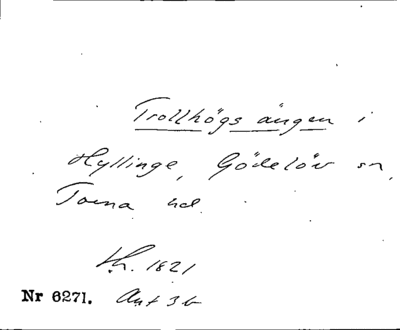 Trollhögs ängen i
Hyllinge, Gödelöv sn,
Torna hd.
Th. 1821
Nr 6271. Ant 3 b